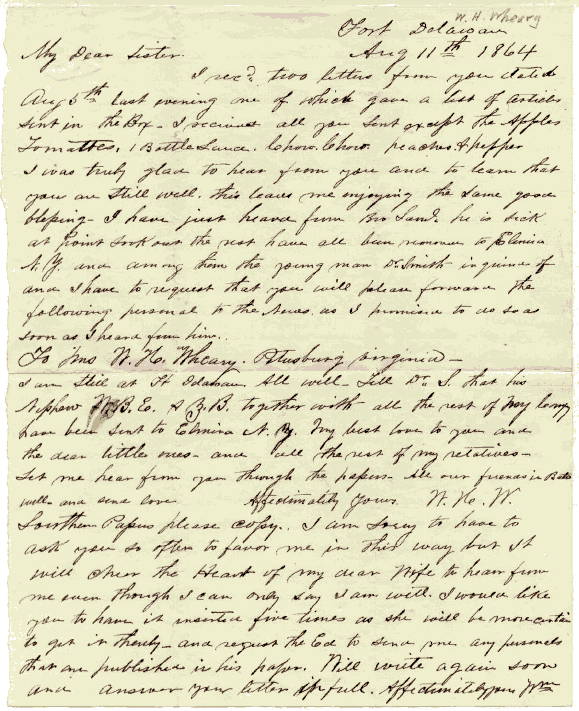 W. H. Wheary
Fort Delaware
Aug 11th 1864
My Dear Sister.
I recd two letters from you dated
Aug 5th last evening one of which gave a list of articles
sent in the Box - I received all you sent except the Apples
Tomattoes, 1 Bottle Sauce. Chow. Chow. peaches & pepper
I was truly glad to hear from you and to learn that
you are still well. this leaves me enjoying the same good
blessing - I have just heard from Bro he is sick
at point look out the rest have all been removed to Elmira
N.Y. and among them the young man Dr Smith inquired of
and I have to request that you will please forward the
following personal to the News. as I promised to do so as
soon as I heard from him..
To Mrs W. H. Wheary. Petersburg virginia -
I am still at Ft Delaware. All well - Tell Dr. S. that his
Nephew B. E. & J. B. together with all the rest of my Comp
have been sent to Elmira N. Y. My best love to you and
the dear little ones - and all the rest of my relatives -
Let me hear from you through the papers - All our friends in Balto
well - and send love Affectionately Yours W. H. W.
Southern Papers please copy.. I am sorry to have to
ask you so often to favor me in this way but it
will cheer the Heart of my dear Wife to hear from
me even though I can only say I am well. I would like
you to have it inserted five times as she will be more certain
to get it thereby - and request the Ed to send me any personals
that are published in his paper. Will write again soon
and answer your letter in full. Affectionately yours Wm